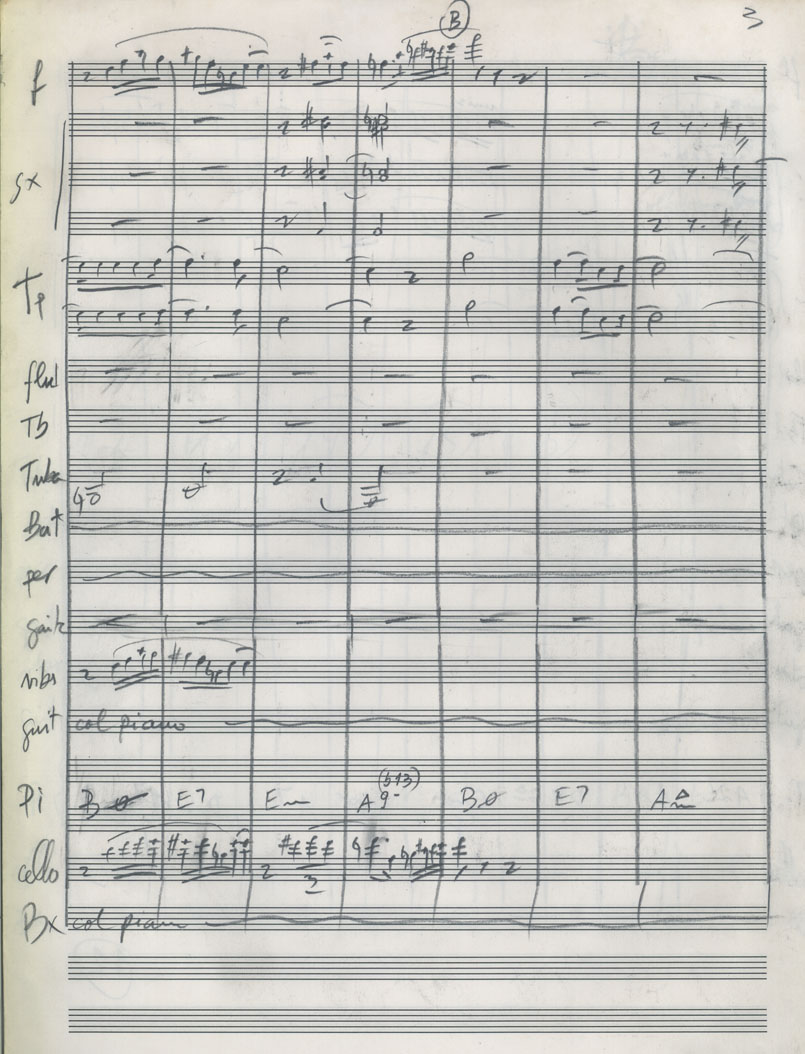 3
B
f
sx
Tp
flul
Tb
Tuba
Bat
per
gaita
vibs
guit col piano
(b13)
Pi Bø E7 Em A9- Bø E7 Am△
cello
3
Bx col piano